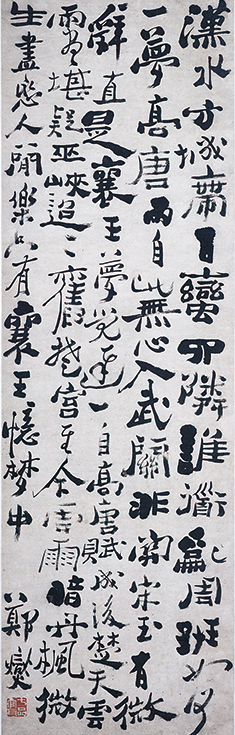 漢水方城帶百蠻四隣誰道亂周班如何
一夢高唐雨自此無心入武關非關宋玉有微
辭直是襄王夢覺遲一自高唐賦成後楚天雲
雨盡堪疑巫峽迢迢舊楚宮至今雲雨暗丹楓微
生盡戀人間樂只有襄王憶夢中
鄭燮